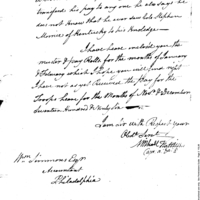 transferred his pay to any one he always he
does not know that he ever saw Lieut Stephen
Merrics of Kentucky to his knowledge.
I have here enclosed you the
muster & pay Rolls for the months of January
& February which I hope you will find right
I have not as yet Received the Pay for the
Troops here for the Months of Novr & December
Seventeen hundred & Ninety Six
I am Sir with Respect your
Obdt Servt
Wm Simmons Esqr
Accountant
Philadelphia